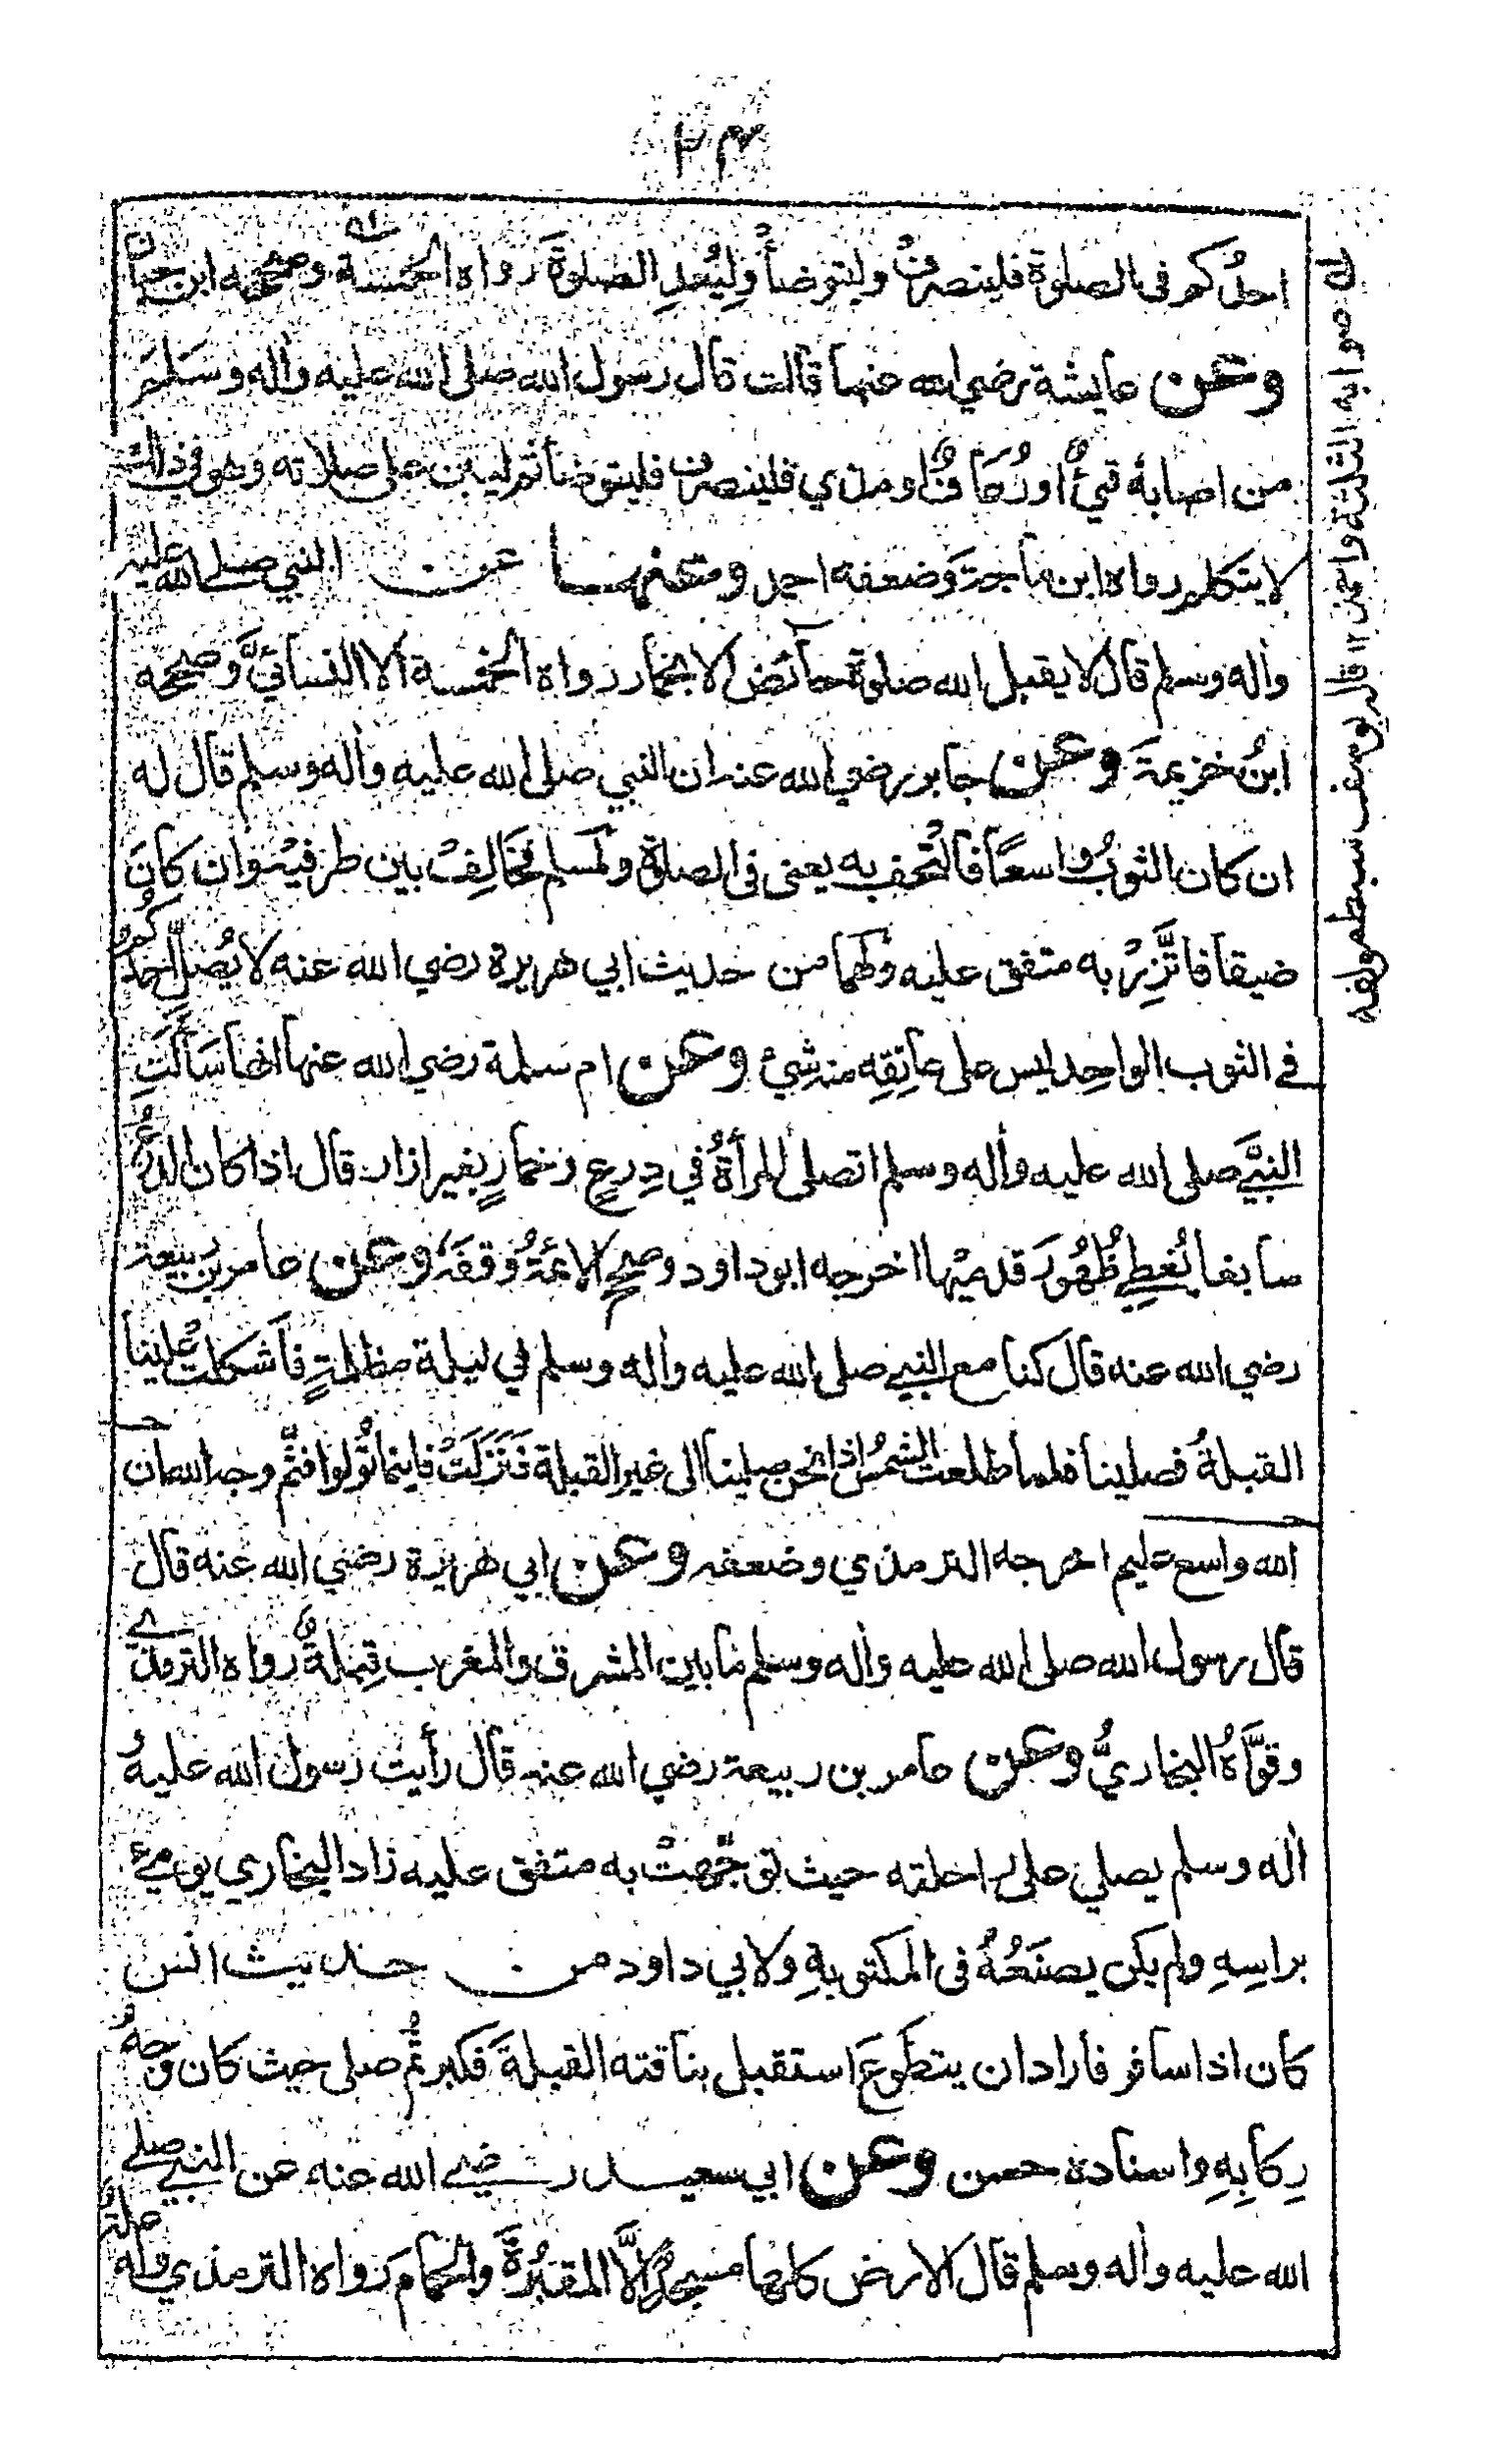 ٢٣
احدُكم فى الصلوة فلينصرفْ وليتوضأْ وليُعِدِ الصلوةَ رواه الخمسة وصححه ابن حبان
وعن عايشة رضي الله عنها قالت قال رسول الله صلى الله عليه وأله وسَلَّمَ
من اصابهُ قيءٌ اورُعَافٌ او مذي فلينصرف فليتوضأ ثم ليبن على صلاته وهو في ذالك
لا يتكلم رواه ابن ماجة وَضعفه احمد وعنها عن النبي صلى الله عليه
وأله وسلم قال لا يقبل الله صلوة حآئض الا بخمار رواه الخمسة الا النسائيَّ وصححه
ابنُ خزيمةَ وعن جابر رضي الله عنه ان النبي صلى الله عليه وأله وسلم قال له
ان كان الثوبُ واسعًا فالْتَحف به يعنى فى الصلاة ولمسلم فخَالِفْ بين طرفيْه وان كانَ
ضيقا فاتَّزِرْ به متفق عليه ولهما من حديث ابي هريرة رضي الله عنه لا يُصَلِّ احدُكم
في الثوب الواحِد ليس على عاتِقِه منه شيئ وعن ام سلمة رضي الله عنها انها سَألَتِ
النبيَّ صلى الله عليه وأله وسلم اتصلى المرأةُ في دِرعٍ وخمارٍ بغير ازار قال اذا كان الدرعُ
سابغا يُغطي ظُهُورَ قدميْها اخرجه ابو داود وصحح الائمةُ وقفَهُ وعن عامر بن ربيعة
رضي الله عنه قال كنا مع النبي صلى الله عليه وأله وسلم في ليلة مظلمةٍ فأشكلت علينا
القبلةُ فصلينا فلما طلعت الشمسُ اذا نحن صلينا الى غير القبلة فَنَزَلَتْ فاينما تُولوا فثَمَّ وجه الله ان
الله واسع عليم اخرجه الترمذي وضعفه وعن ابي هريرة رضي الله عنه قال
قال رسول الله صلى الله عليه وأله وسلم ما بين المشرق والمغرب قِبلةٌ رواه الترمذي
وقوَّاهُ البخاريُّ وعن عامر بن ربيعة رضي الله عنه قال رأيت رسول الله عليه و
أله وسلم يصلي على راحلته حيث توجَّهتْ به متفق عليه زاد البخاري يومئ
براسِهِ ولم يكن يصنَعُهُ فى المكتوبةِ ولابي داود من حديث انس
كان اذا سافر فأراد ان يتطوعَ استقبل بناقته القبلةَ فكبر ثُم صلى حيث كان وجهُ
رِكَابِهِ واسناده حسن وعن ابي سعيد رضي الله عنه عن النبي صلى
الله عليه وأله وسلم قال الارض كلها مسجدٌ إلَّا المقبُرَةَ والحمام رواه الترمذي وله علته
له صوابه الثلثة واحمد ١٢ قاله يوسف سبط مولفه